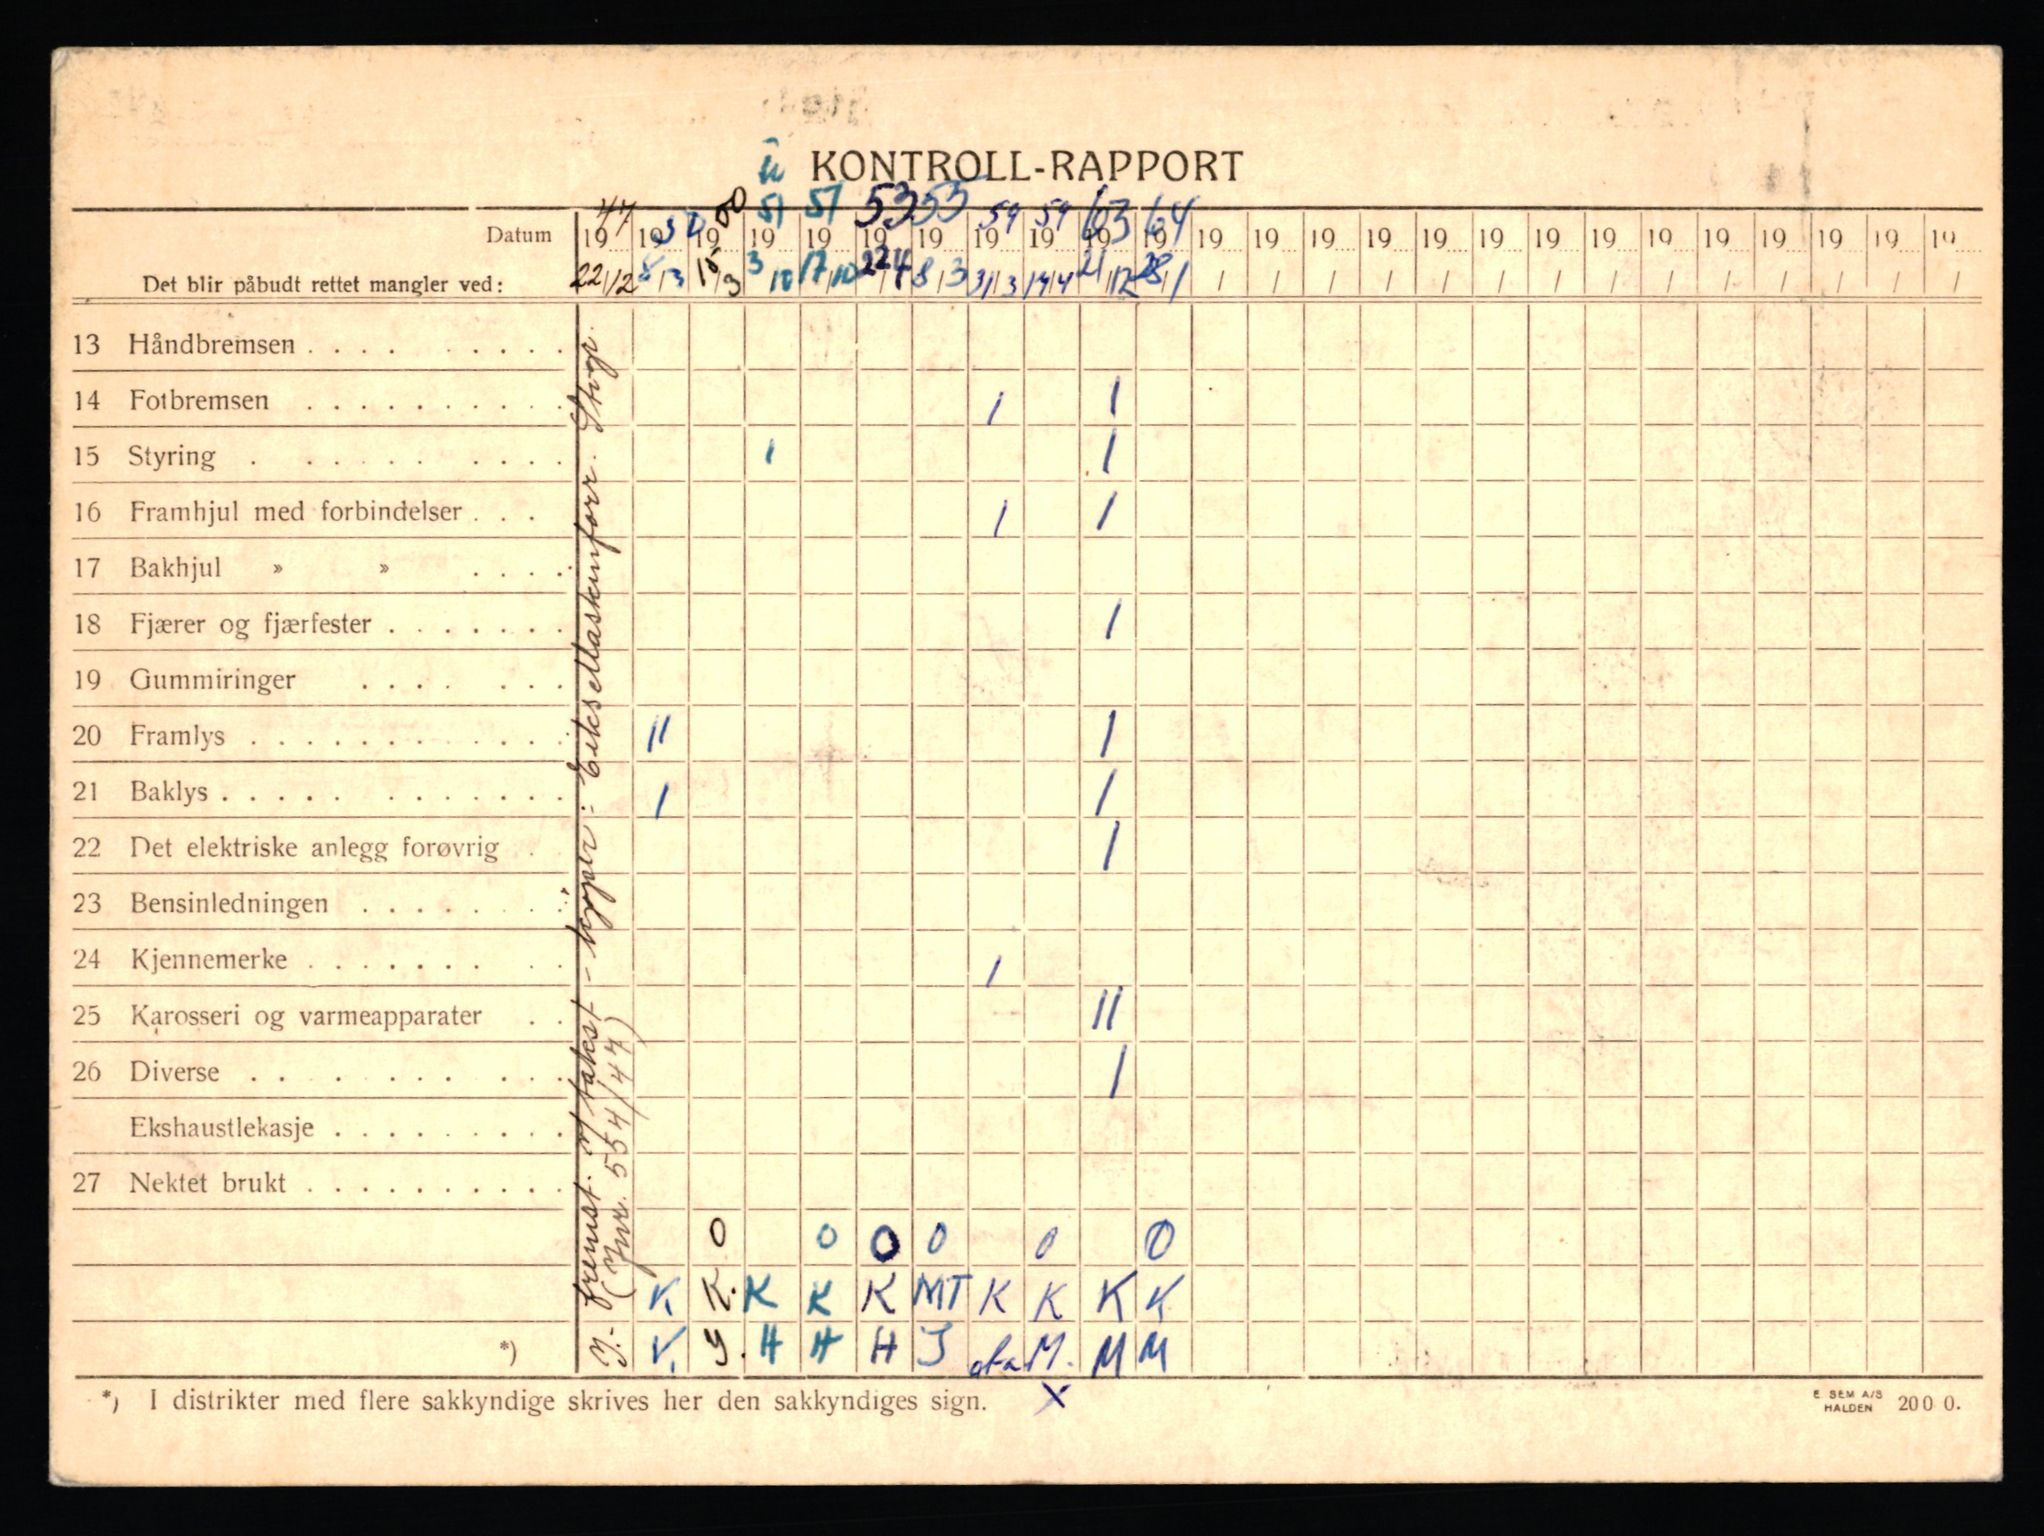 KONTROLL-RAPPORT
47 50 50 51 51 53 53 59 59 63 64
Datum 19 19 19 19 19 19 19 19 19 19 19 19 19 19 19 19 19 19 19 19 19 19 19 19 19
Det blir påbudt rettet mangler ved: 22/12 8/3 15/3 3/10 17/10 22/4 8/3 31/3 14/4 21/12 28/1 / / / / / / / / / / / / / /
13 Håndbremsen
14 Fotbremsen I I
15 Styring I I
16 Framhjul med forbindelser I I
17 Bakhjul » »
18 Fjærer og fjærfester I
19 Gummiringer
20 Framlys II I
21 Baklys I I
22 Det elektriske anlegg forøvrig I
23 Bensinledningen
24 Kjennemerke I
25 Karosseri og varmeapparater II
26 Diverse I
Ekshaustlekasje
27 Nektet brukt
0 0 0 0 0 0
K K. K K K MT K K K K
*) J. V. Y. H H H J M. M M
fremst.
(Jnr. 554/47)
*) I distrikter med flere sakkyndige skrives her den sakkyndiges sign. X
E SEM A/S
HALDEN 200 0.